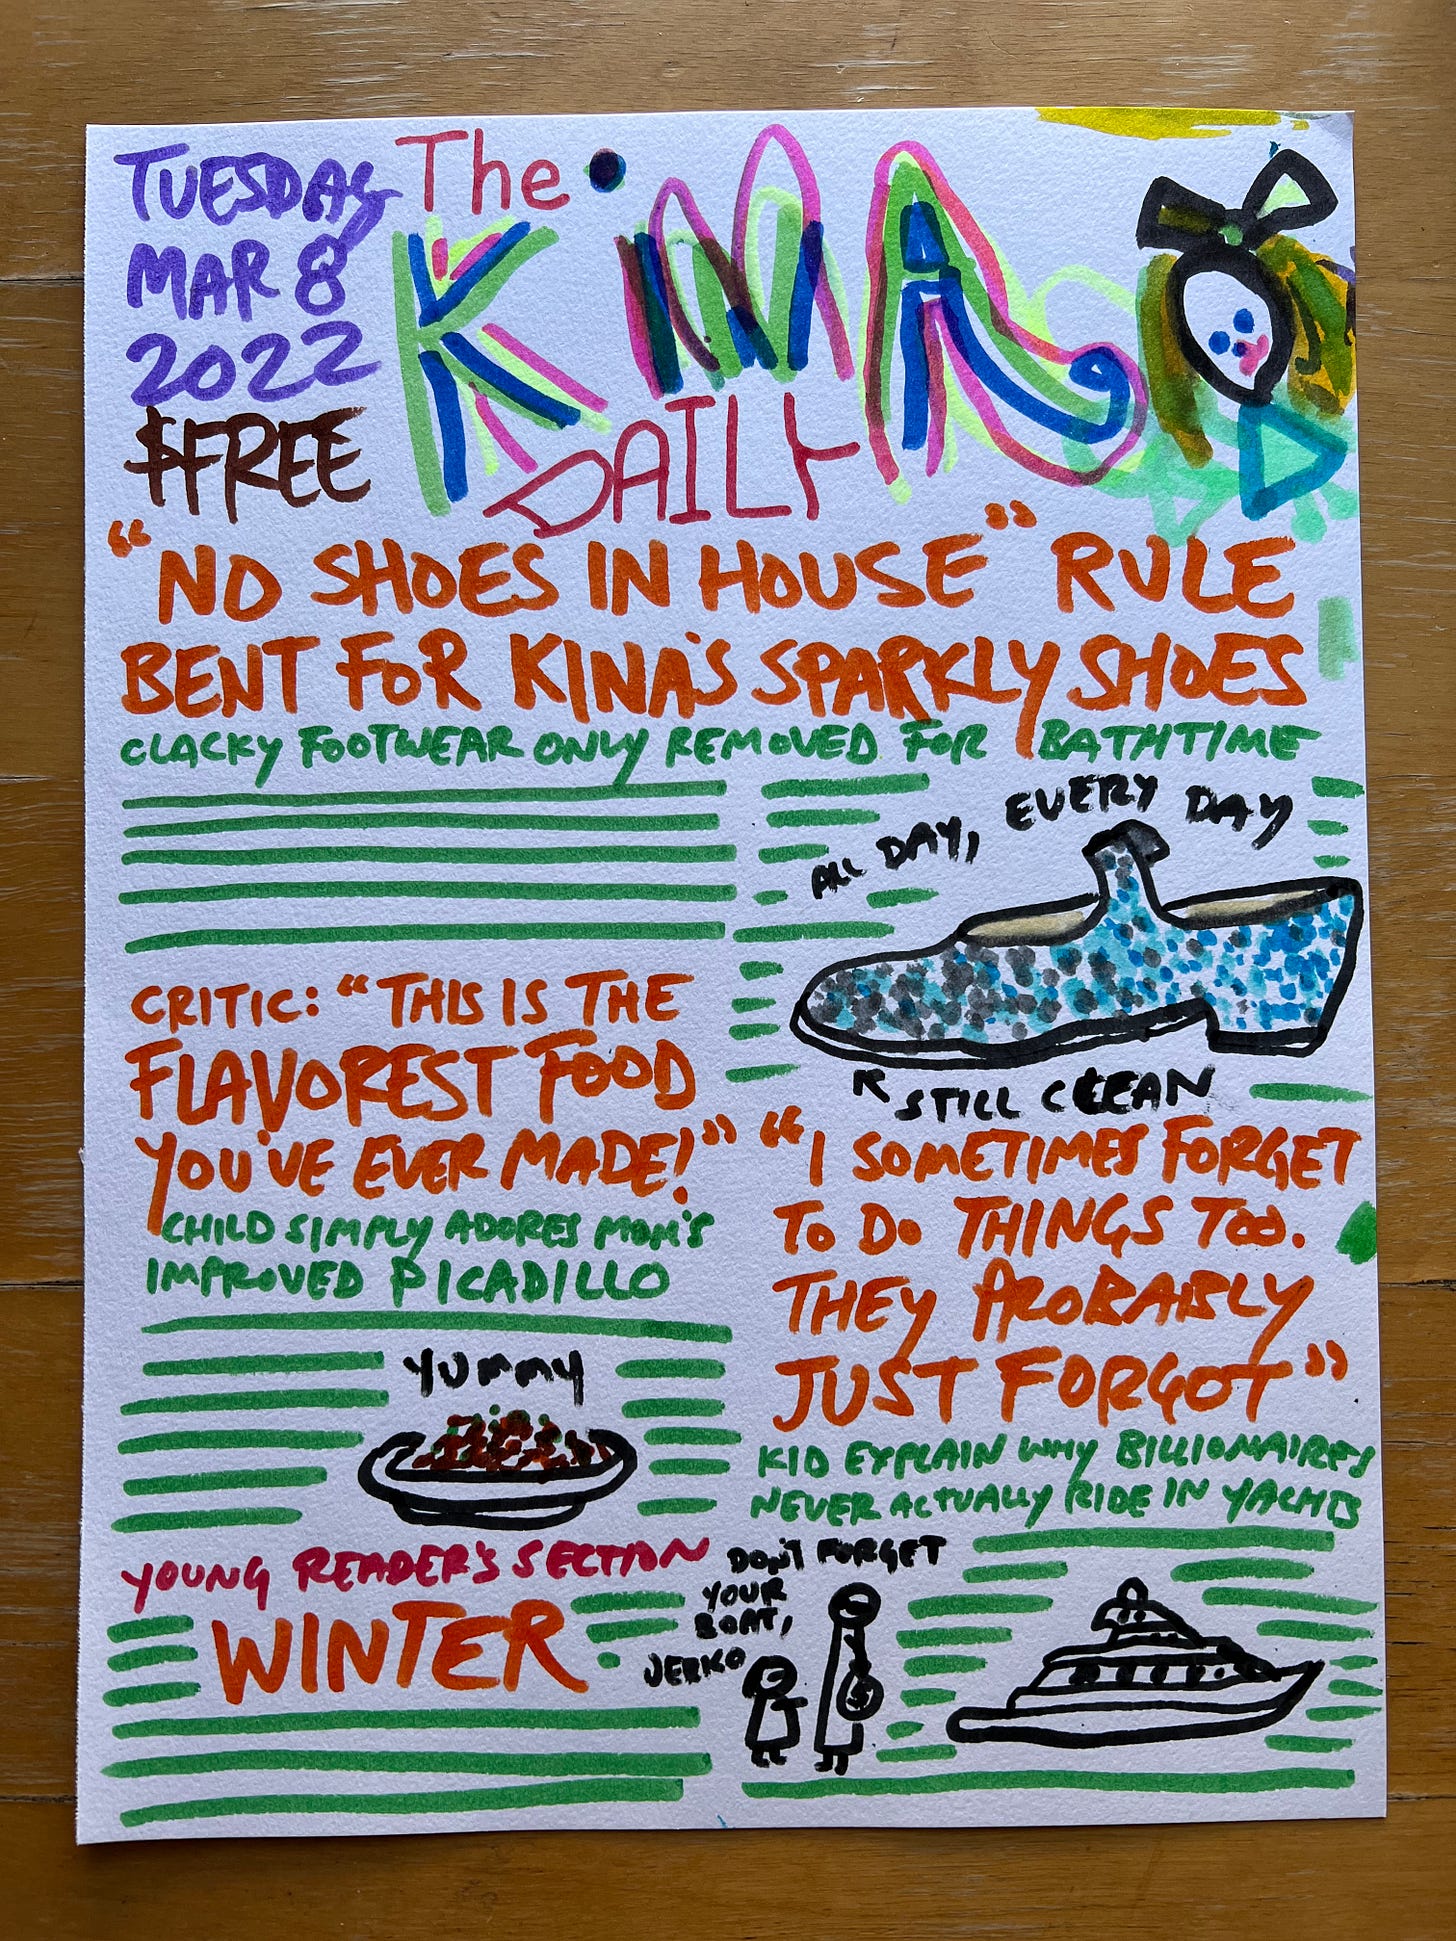 TUESDAY
MAR 8
2022
$FREE
The
KiNA
DAILY
"NO SHOES IN HOUSE" RULE
BENT FOR KINA'S SPARKLY SHOES
CLACKY FOOTWEAR ONLY REMOVED FOR BATHTIME
ALL DAY, EVERY DAY
STILL CLEAN
CRITIC: "THIS IS THE
FLAVOREST FOOD
YOU'VE EVER MADE!"
CHILD SIMPLY ADORES MOM'S
IMPROVED PICADILLO
YUMMY
"I SOMETIMES FORGET
TO DO THINGS TOO.
THEY PROBABLY
JUST FORGOT"
KID EXPLAIN WHY BILLIONAIRES
NEVER ACTUALLY RIDE IN YACHTS
DON'T FORGET
YOUR
BOAT,
JERKO
$
YOUNG READER'S SECTION
WINTER